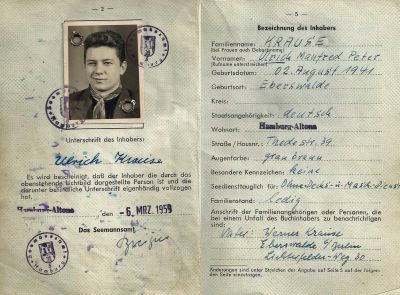 — 2 —
Unterschrift des Inhabers:
Ulrich Krause
Es wird bescheinigt, daß der Inhaber die durch das
obenstehende Lichtbild dargestellte Person ist und die
darunter befindliche Unterschrift eigenhändig vollzogen
hat.
Hamburg-Altona, den -6. MRZ. 1959
Das Seemannsamt
— 5 —
Bezeichnung des Inhabers
Familienname: KRAUSE
(bei Frauen auch Geburtsname)
Vornamen: Ulrich Manfred Peter
(Rufname unterstreichen)
Geburtsdatum: 02. August 1941
Geburtsort: Eberswalde
Kreis:
Staatsangehörigkeit: deutsch
Wohnort: Hamburg-Altona
Straße / Hausnr.: Thedestr. 39
Augenfarbe: graubraun
Besondere Kennzeichen: Keine
Seediensttauglich für: Ohne Decks- u. Masch.-Dienst
Familienstand: ledig
Anschrift der Familienangehörigen oder Personen, die
bei einem Unfall des Buchinhabers zu benachrichtigen
sind.
Vater: Werner Krause
Eberswalde b/Berlin
Lichterfelder-Weg 30
Änderungen sind unter Streichen der Angabe auf Seite 5 auf der folgen-
den Seite einzutragen.